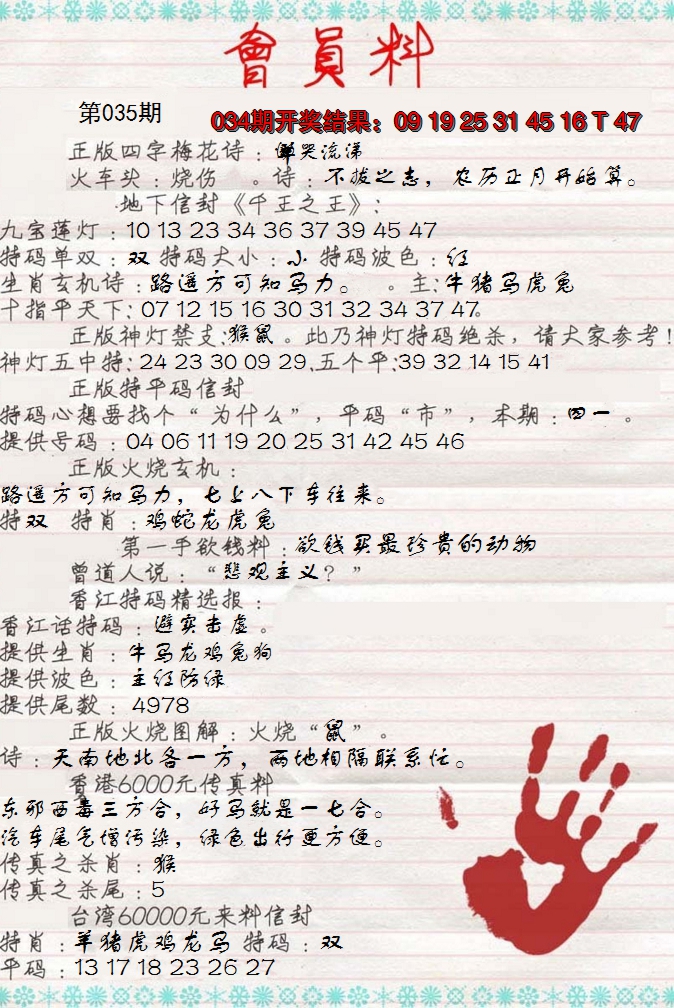 會員料
第035期
034期开奖结果：09 19 25 31 45 16 T 47
正版四字梅花诗：哭流涕
火车头：烧伤 。诗：不拔之志，农历正月开始算。
地下信封《千王之王》：
九宝莲灯：10 13 23 34 36 37 39 45 47
特码单双：双 特码大小：小 特码波色：红
生肖玄机诗：路遥方可知马力。 。主：牛猪马虎兔
十指平天下：07 12 15 16 30 31 32 34 37 47.
正版神灯禁支：猴鼠。此乃神灯特码绝杀，请大家参考！
神灯五中特：24 23 30 09 29.五个平：39 32 14 15 41
正版特平码信封
特码心想要找个“为什么”，平码“市”，本期：四一 。
提供号码：04 06 11 19 20 25 31 42 45 46
正版火烧玄机：
路遥方可知马力，七上八下车往来。
特双 特肖：鸡蛇龙虎兔
第一手欲钱料：欲钱买最珍贵的动物
曾道人说：“悲观主义？”
香江特码精选报：
香江话特码：避实击虚。
提供生肖：牛马龙鸡兔狗
提供波色：主红防绿
提供尾数：4978
正版火烧图解：火烧“鼠”。
诗：天南地北各一方，两地相隔联系忙。
香港6000元传真料
东邪西毒三方合，好马就是一七合。
汽车尾气增污染，绿色出行更方便。
传真之杀肖：猴
传真之杀尾：5
台湾60000元来料信封
特肖：羊猪虎鸡龙马 特码：双
平码：13 17 18 23 26 27